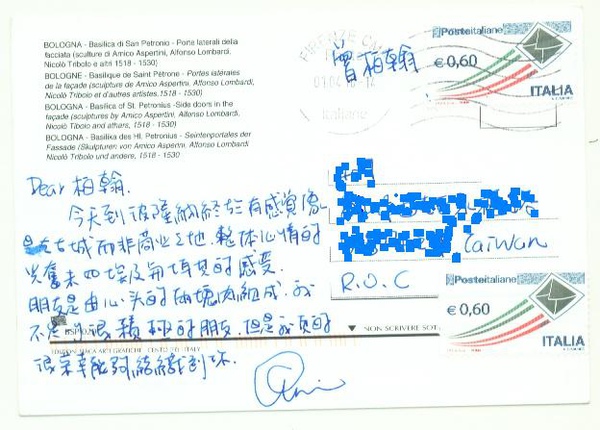 BOLOGNA - Basilica di San Petronio - Porte laterali della
facciata (sculture di Amico Aspertini, Alfonso Lombardi,
Nicolò Tribolo e altri 1518 - 1530)
BOLOGNE - Basilique de Saint Pétrone - Portes latérales
de la façade (sculpture de Amico Aspertini, Alfonso Lombardi,
Nicolò Tribolo et d'autres artistes, 1518 - 1530)
BOLOGNA - Basilica of St. Petronius -Side doors in the
façade (sculptures by Amico Aspertini, Alfonso Lombardi,
Nicolò Tibolo and athars, 1518 - 1530)
BOLOGNA - Basilika des Hl. Petronius - Seintenportales der
Fassade (Skulpturen von Amico Aspertini, Alfonso Lombardi
Nicolò Tribolo und andere, 1518 - 1530
FIRENZE
Italiane
曾柏翰
Posteitaliane
€ 0,60
ITALIA
Dear 柏翰.
今天到波隆納終於有感覺像
是古城而非商業之地.整体心情的
興奮未如埃及與土耳其的感受.
朋友是由心头的兩塊肉組成.我
不是個很積極的朋友.但是我真的
很榮幸能夠結織到妳.
Taiwan
R.O.C
Posteitaliane
€ 0,60
ITALIA
NON SCRIVERE SOT
CENTO